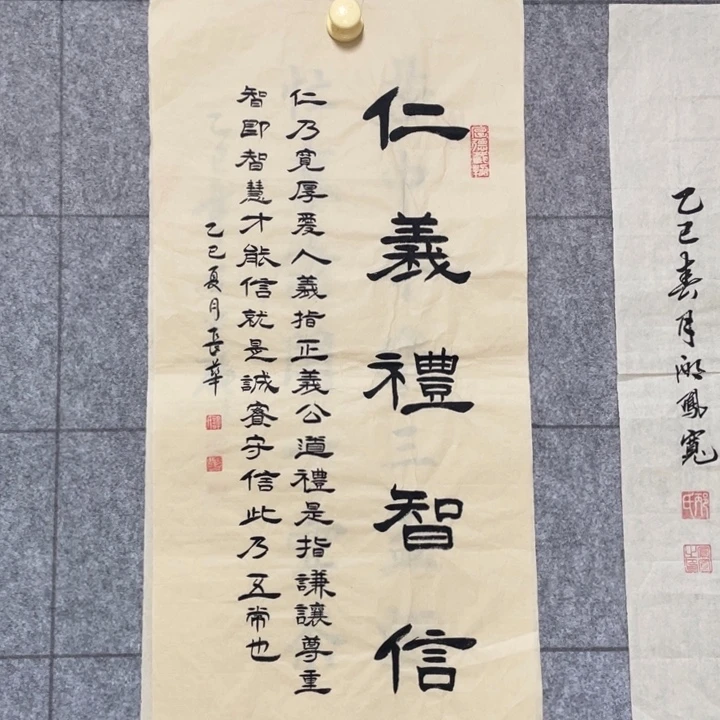 乙巳春月鳳寬
仁義禮智信
厚德載物
仁乃寬厚愛人義指正義公道禮是指謙讓尊重
智即智慧才能信就是誠實守信此乃五常也
乙巳夏月長華